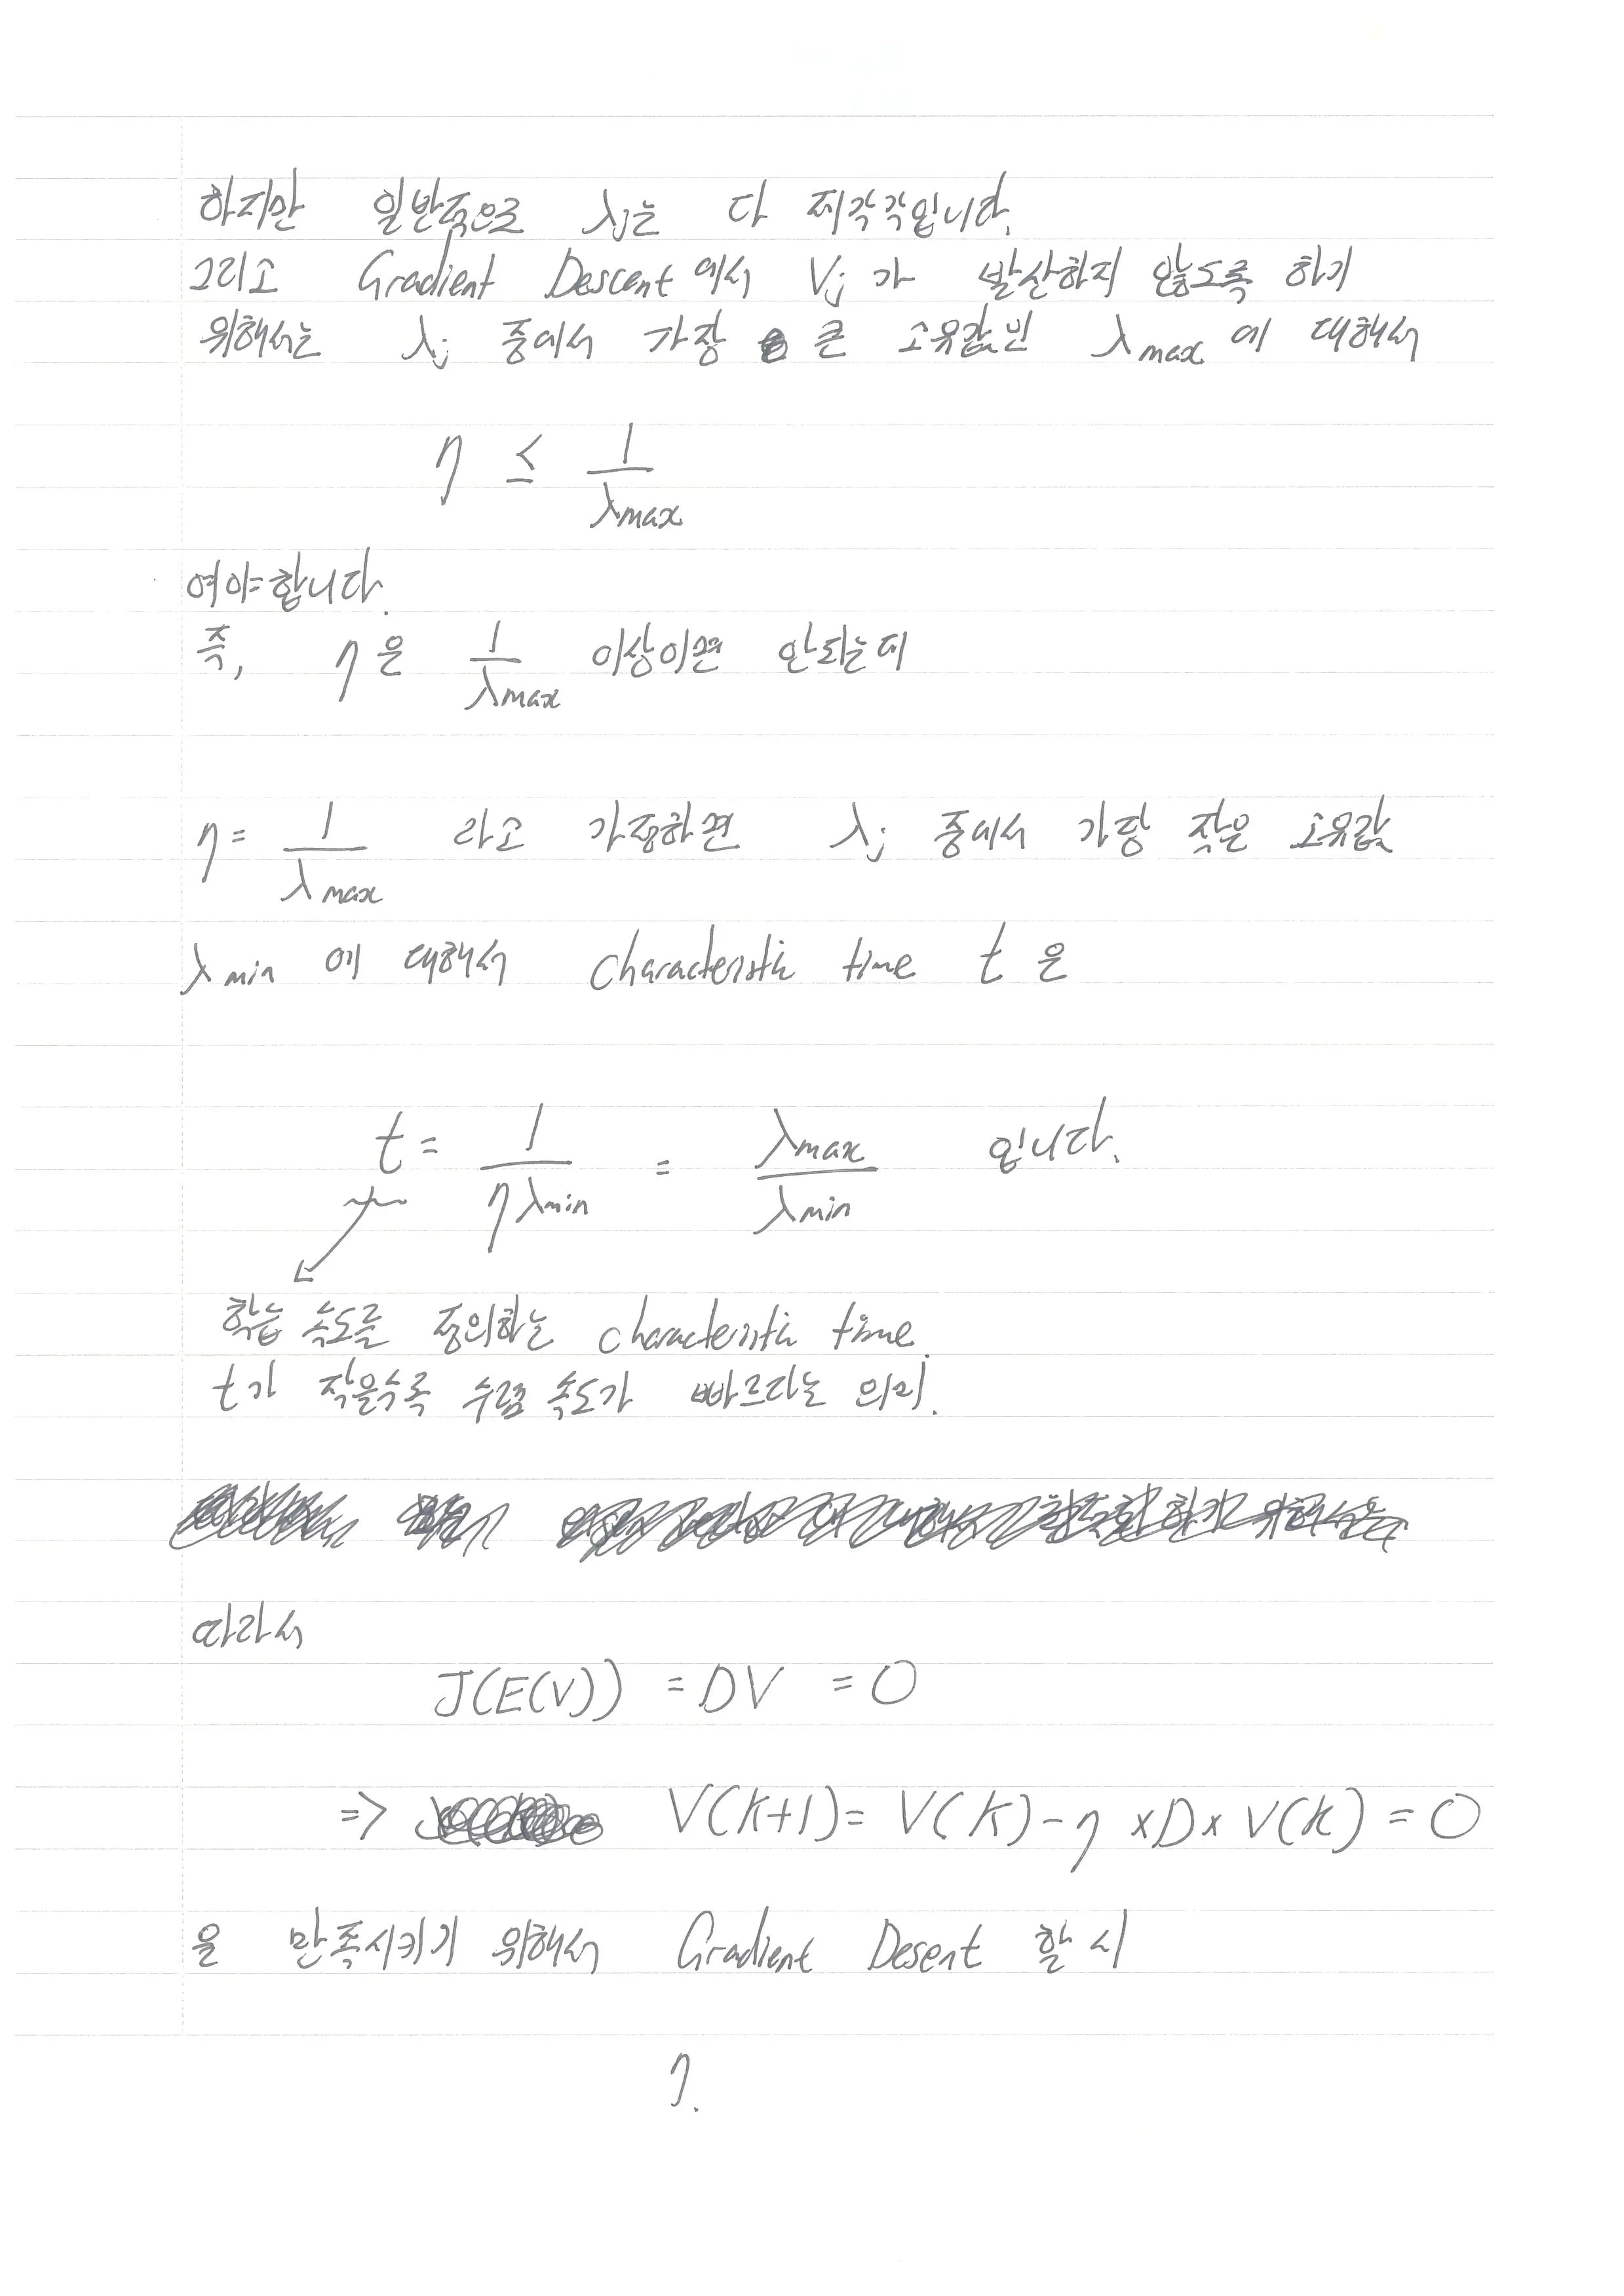 하지만 일반적으로 λj는 다 제각각입니다.
그리고 Gradient Descent에서 Vj가 발산하지 않도록 하기
위해서는 λj 중에서 가장 큰 고유값인 λmax에 대해서
η ≤ 1/λmax
여야합니다.
즉, η은 1/λmax 이상이면 안되는데
η = 1/λmax 라고 가정하면 λj 중에서 가장 작은 고유값
λmin에 대해서 characteristic time t은
t = 1/(ηλmin) = λmax/λmin 입니다.
학습 속도를 정의하는 characteristic time.
t가 작을수록 수렴 속도가 빠르다는 의미.
따라서
J(E(V)) = DV = 0
=> V(K+1) = V(K) - η × D × V(K) = 0
을 만족시키기 위해서 Gradient Desent 할 시
7.